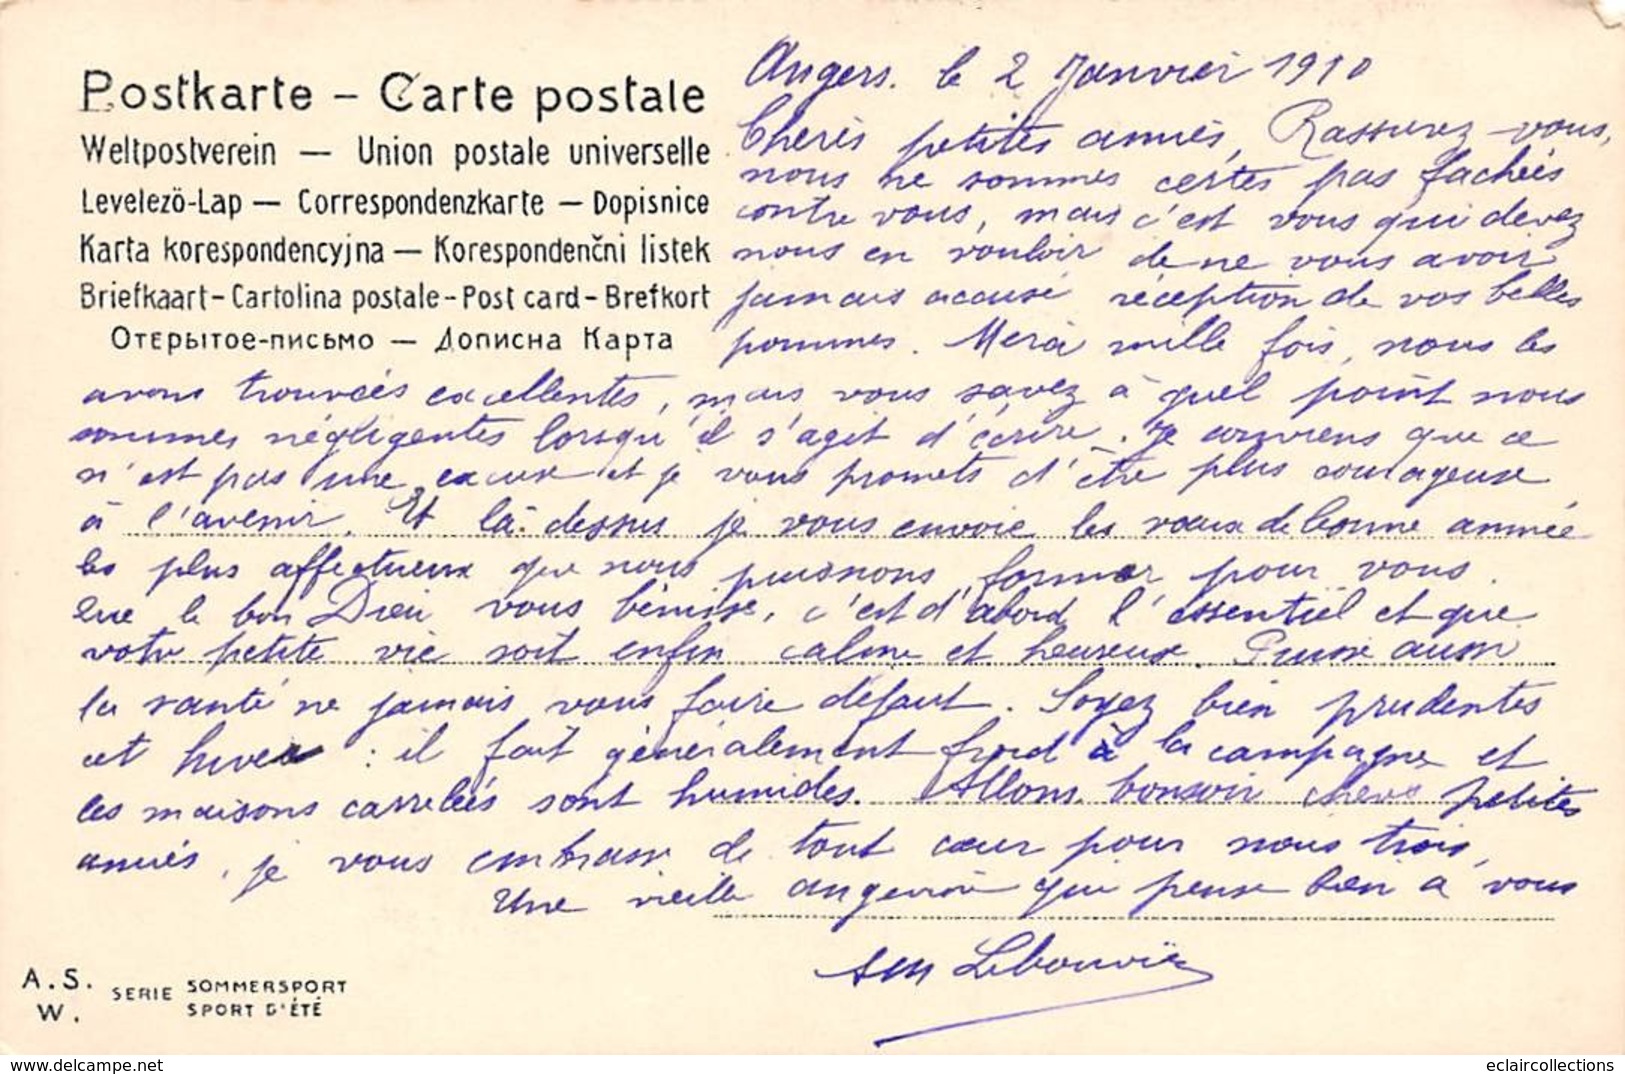 Postkarte – Carte postale
Weltpostverein — Union postale universelle
Levelezö-Lap — Correspondenzkarte — Dopisnice
Karta korespondencyjna — Korespondenčni listek
Briefkaart - Cartolina postale - Post card - Brefkort
Открытое-письмо — Дописна Карта
Angers. le 2 Janvier 1910
Cheres petites amies, Rassurez-vous,
nous ne sommes certes pas fachées
contre vous, mais c'est vous qui devez
nous en vouloir de ne vous avoir
jamais accusé réception de vos belles
pommes. Merci mille fois, nous les
avons trouvées excellentes, mais vous savez à quel point nous
sommes négligentes lorsqu'il s'agit d'écrire. Je conviens que ce
n'est pas une excuse et je vous promets d'être plus courageuse
à l'avenir. Et là-dessus je vous envoie les vœux de bonne année
les plus affectueux que nous puissions former pour vous.
Que le bon Dieu vous bénisse, c'est d'abord l'essentiel et que
votre petite vie soit enfin calme et heureuse. Puisse aussi
la santé ne jamais vous faire défaut. Soyez bien prudentes
cet hiver : il fait généralement froid à la campagne et
les maisons carrelées sont humides. Allons, bonsoir chères petites
amies, je vous embrasse de tout cœur pour nous trois,
Une vieille angevine qui pense bien à vous
Lebouvier
A. S. W. SERIE SOMMERSPORT
SPORT D'ÉTÉ
eclaircollections